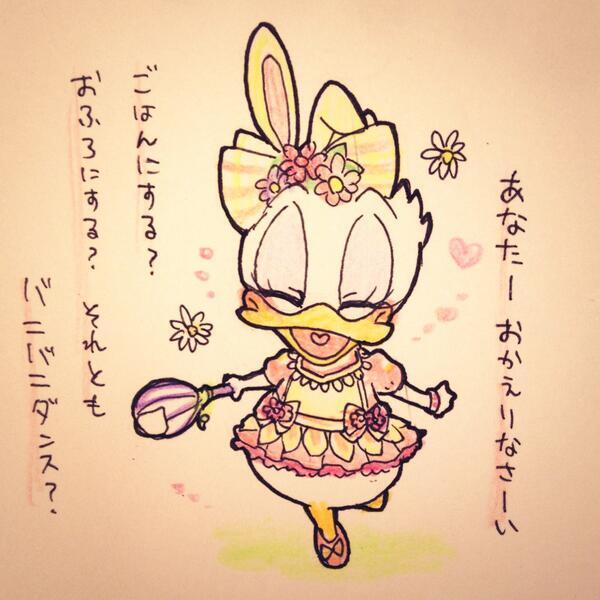 あなたー おかえりなさーい
ごはんにする?
おふろにする? それとも
バニバニダンス?